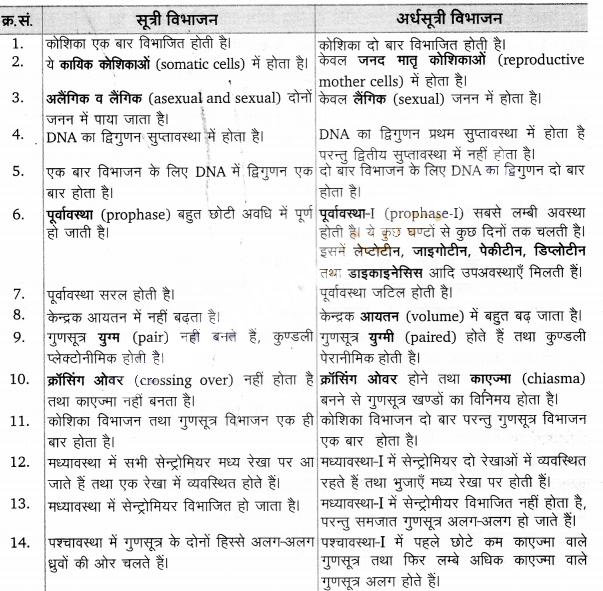 क्र.सं. सूत्री विभाजन अर्धसूत्री विभाजन
1. कोशिका एक बार विभाजित होती है। कोशिका दो बार विभाजित होती है।
2. ये कायिक कोशिकाओं (somatic cells) में होता है। केवल जनद मातृ कोशिकाओं (reproductive
mother cells) में होता है।
3. अलैंगिक व लैंगिक (asexual and sexual) दोनों केवल लैंगिक (sexual) जनन में होता है।
जनन में पाया जाता है।
4. DNA का द्विगुणन सुप्तावस्था में होता है। DNA का द्विगुणन प्रथम सुप्तावस्था में होता है
परन्तु द्वितीय सुप्तावस्था में नहीं होता है।
5. एक बार विभाजन के लिए DNA में द्विगुणन एक दो बार विभाजन के लिए DNA का द्विगुणन दो बार
बार होता है। होता है।
6. पूर्वावस्था (prophase) बहुत छोटी अवधि में पूर्ण पूर्वावस्था-I (prophase-I) सबसे लम्बी अवस्था
हो जाती है। होती है। ये कुछ घण्टों से कुछ दिनों तक चलती है।
इसमें लेप्टोटीन, जाइगोटीन, पेकीटीन, डिप्लोटीन
तथा डाइकाइनेसिस आदि उपअवस्थाएँ मिलती हैं।
7. पूर्वावस्था सरल होती है। पूर्वावस्था जटिल होती है।
8. केन्द्रक आयतन में नहीं बढ़ता है। केन्द्रक आयतन (volume) में बहुत बढ़ जाता है।
9. गुणसूत्र युग्म (pair) नहीं बनते हैं, कुण्डली गुणसूत्र युग्मी (paired) होते हैं तथा कुण्डली
प्लेक्टोनीमिक होती है। पेरानीमिक होती है।
10. क्रॉसिंग ओवर (crossing over) नहीं होता है क्रॉसिंग ओवर होने तथा काएज्मा (chiasma)
तथा काएज्मा नहीं बनता है। बनने से गुणसूत्र खण्डों का विनिमय होता है।
11. कोशिका विभाजन तथा गुणसूत्र विभाजन एक ही कोशिका विभाजन दो बार परन्तु गुणसूत्र विभाजन
बार होता है। एक बार होता है।
12. मध्यावस्था में सभी सेन्ट्रोमियर मध्य रेखा पर आ मध्यावस्था-I में सेन्ट्रोमियर दो रेखाओं में व्यवस्थित
जाते हैं तथा एक रेखा में व्यवस्थित होते हैं। रहते हैं तथा भुजाएँ मध्य रेखा पर होती हैं।
13. मध्यावस्था में सेन्ट्रोमियर विभाजित हो जाता है। मध्यावस्था-I में सेन्ट्रोमीयर विभाजित नहीं होता है,
परन्तु समजात गुणसूत्र अलग-अलग हो जाते हैं।
14. पश्चावस्था में गुणसूत्र के दोनों हिस्से अलग-अलग पश्चावस्था-I में पहले छोटे कम काएज्मा वाले
ध्रुवों की ओर चलते हैं। गुणसूत्र तथा फिर लम्बे अधिक काएज्मा वाले
गुणसूत्र अलग होते हैं।